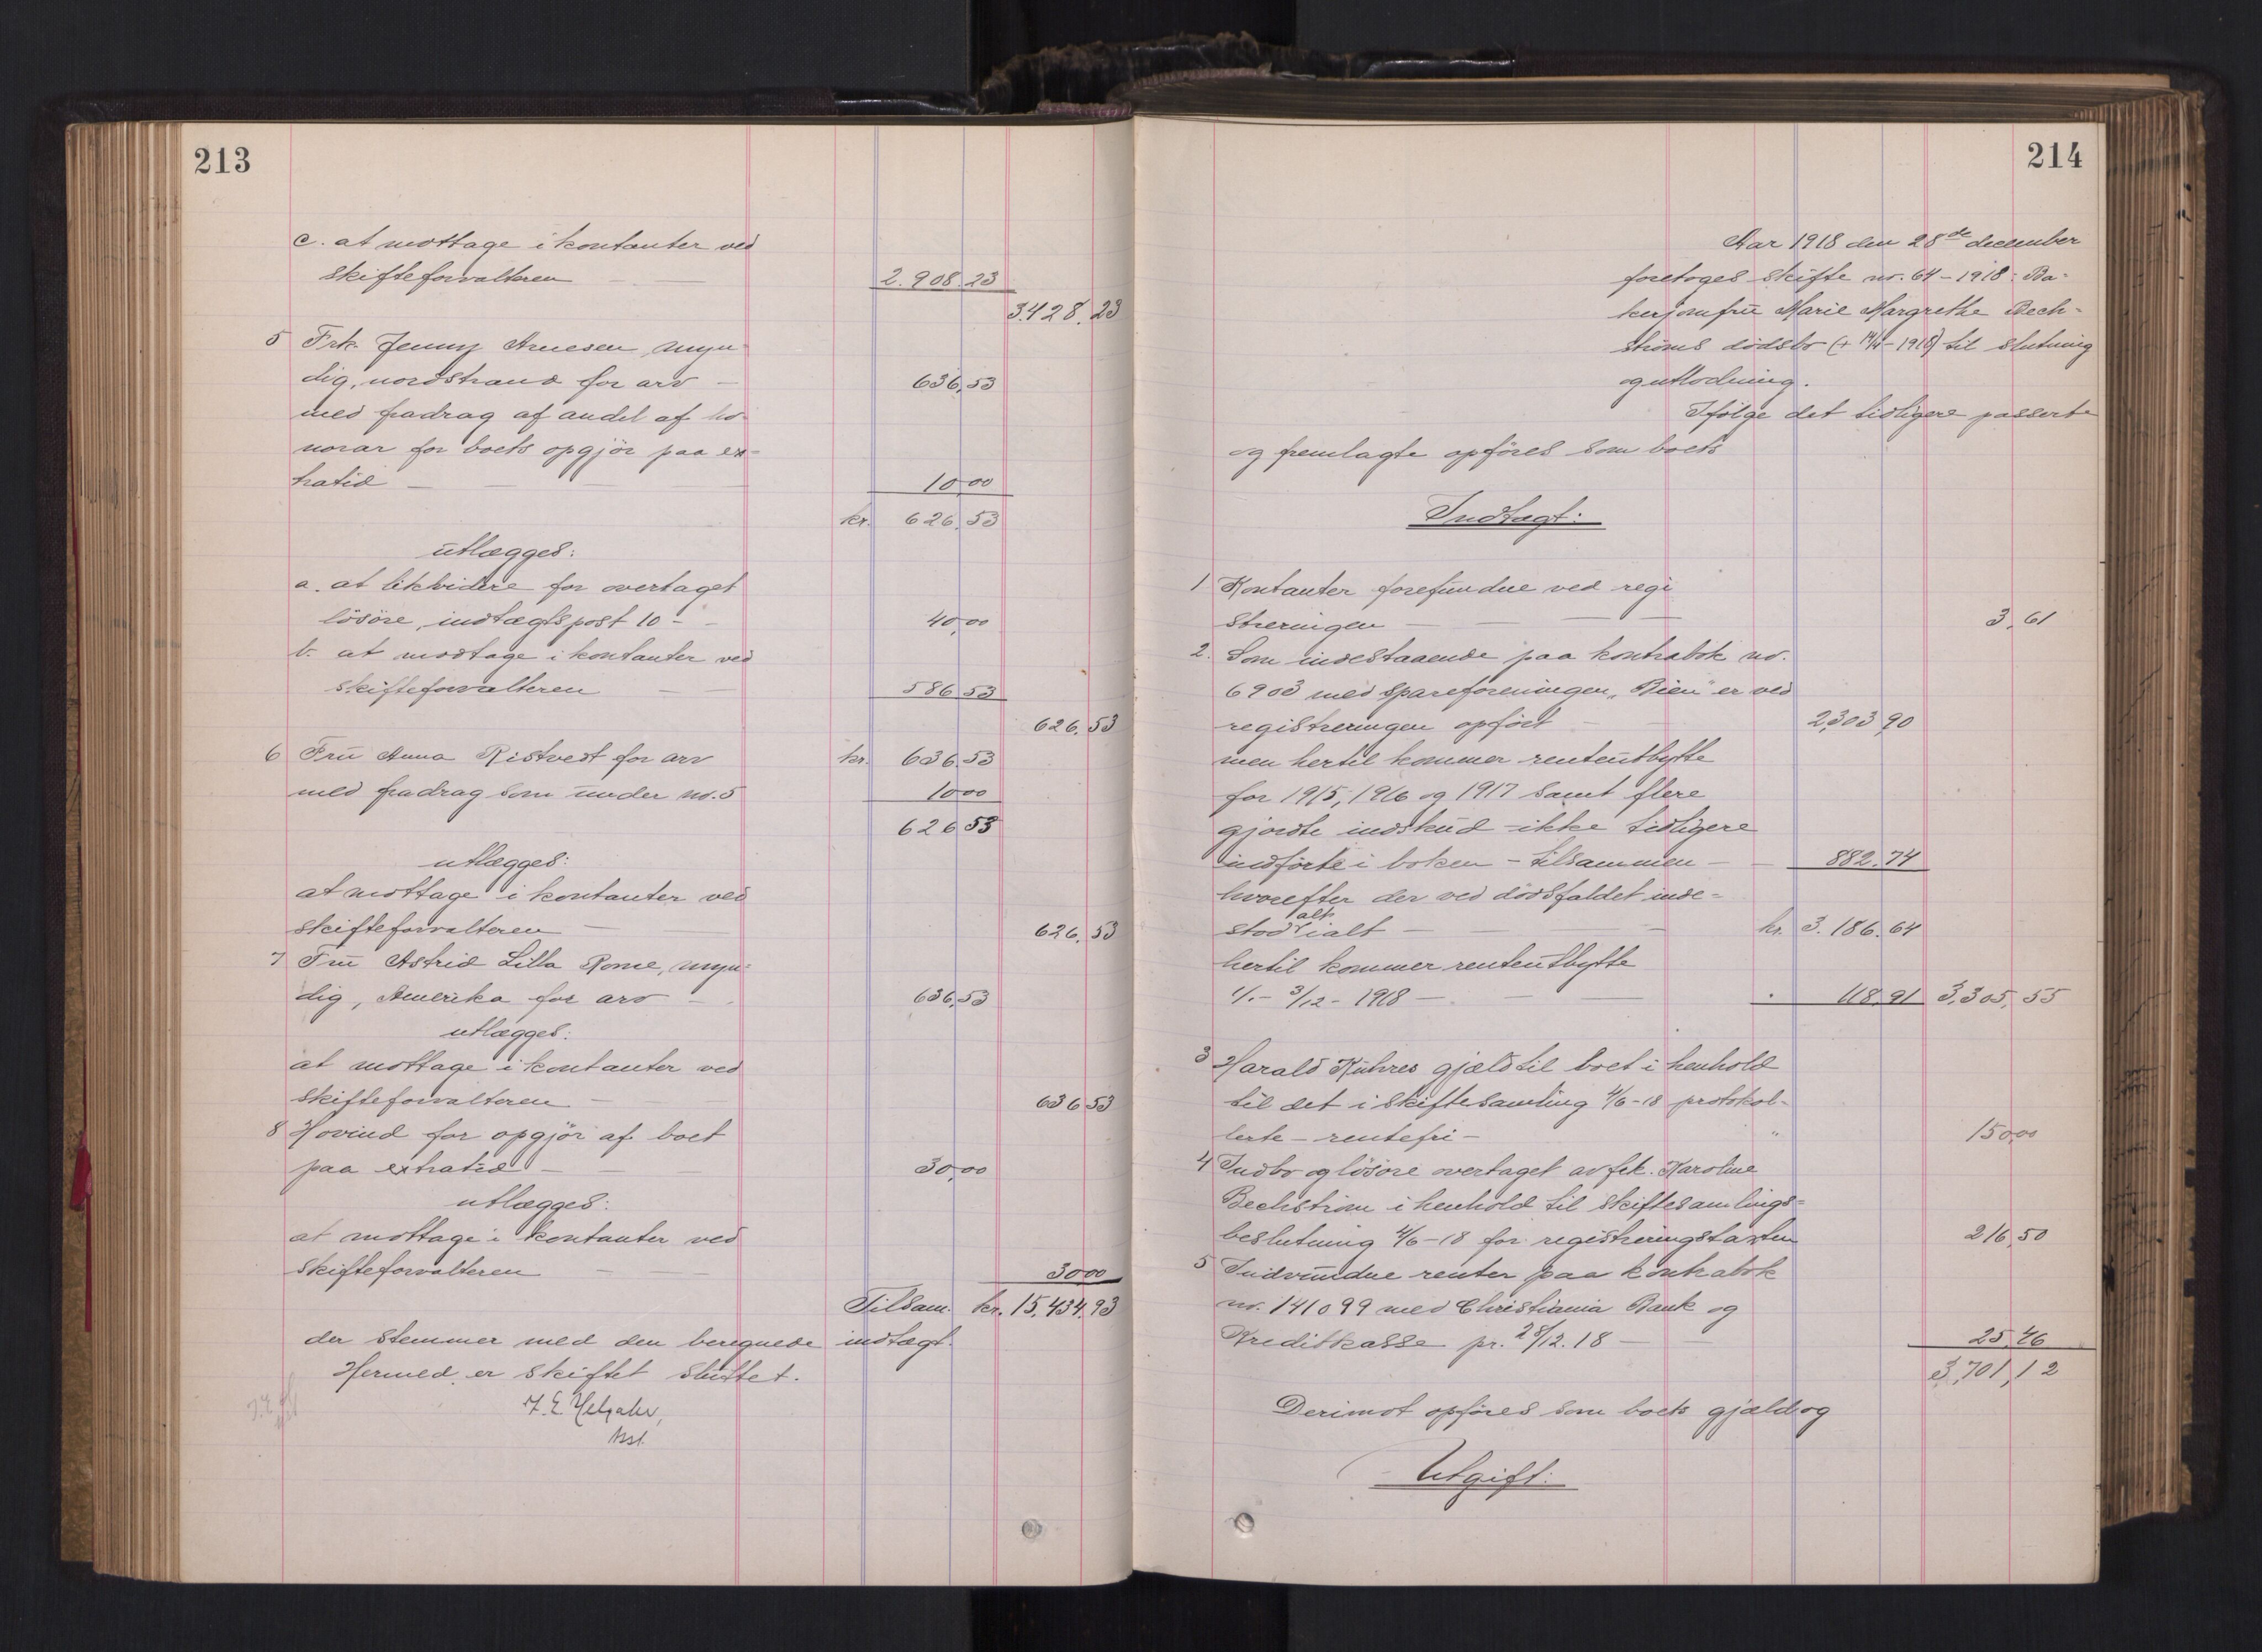 213
c. at mottage i kontanter ved
skifteforvalteren — 2.908.23
3.428.23
5 Frk. Jenny Arnesen, myn-
dig, nordstrand for arv — 636,53
med fradrag af andel af ho-
norar for boets opgjör paa ex-
tratid — 10,00
kr. 626.53
utlægges:
a. at likvidere for overtaget
lösöre, indtægtspost 10 - - 40,00
b. at modtage i kontanter ved
skifteforvalteren — 586.53
626.53
6 Fru Anna Ristvedt for arv kr. 636.53
med fradrag som under no. 5 10.00
626.53
utlægges:
at mottage i kontanter ved
skifteforvalteren — 626.53
7 Fru Astrid Lilla Rome, myn-
dig, Amerika for arv - - 636,53
utlægges:
at mottage i kontanter ved
skifteforvalteren — 636.53
8 Hovind for opgjör af boet
paa extratid — 30,00
utlægges:
at mottage i kontanter ved
skifteforvalteren — 30.00
Tilsam. kr. 15,434.93
der stemmer med den beregnede indtægt.
Hermed er skiftet sluttet.
Asst.
214
Aar 1918 den 28de december
foretoges skifte no. 64-1918: Ba-
kerjomfru Marie Margrethe Bech-
ströms dödsbo til slutning
og utlodning.
Ifölge det tidligere passerte
og fremlagte opföres som boets
Indtægt:
1 Kontanter forefundne ved regi
streringen — 3,61
2. Som indestaaende paa kontrabok no.
6903 med Spareforeningen „Bien" er ved
registreringen opfört — 2,303,90
men hertil kommer renteutbytte
for 1915, 1916 og 1917 samt flere
gjordte indskud - ikke tidligere
indförte i boken - tilsammen — 882.74
hvorefter der ved dödsfaldet inde-
stod alt ialt — kr. 3.186.64
hertil kommer renteutbytte
1/1 - 31/12 - 1918 — 118,91 3,305,55
3 Harald Kuhres gjæld til boet i henhold
til det i skiftesamling 4/6-18 protokol-
lerte - rentefri - " 150,00
4 Indbo og lösöre overtaget av frk. Karoline
Bechström i henhold til skiftesamlings-
beslutning 4/6-18 for registreringstaxten 216,50
5 Indvundne renter paa kontrabok
no. 141099 med Christiania Bank og
Kreditkasse pr. 28/12.18 — 25,46
3,701,12
Derimot opföres som boets gjæld og
Utgift: